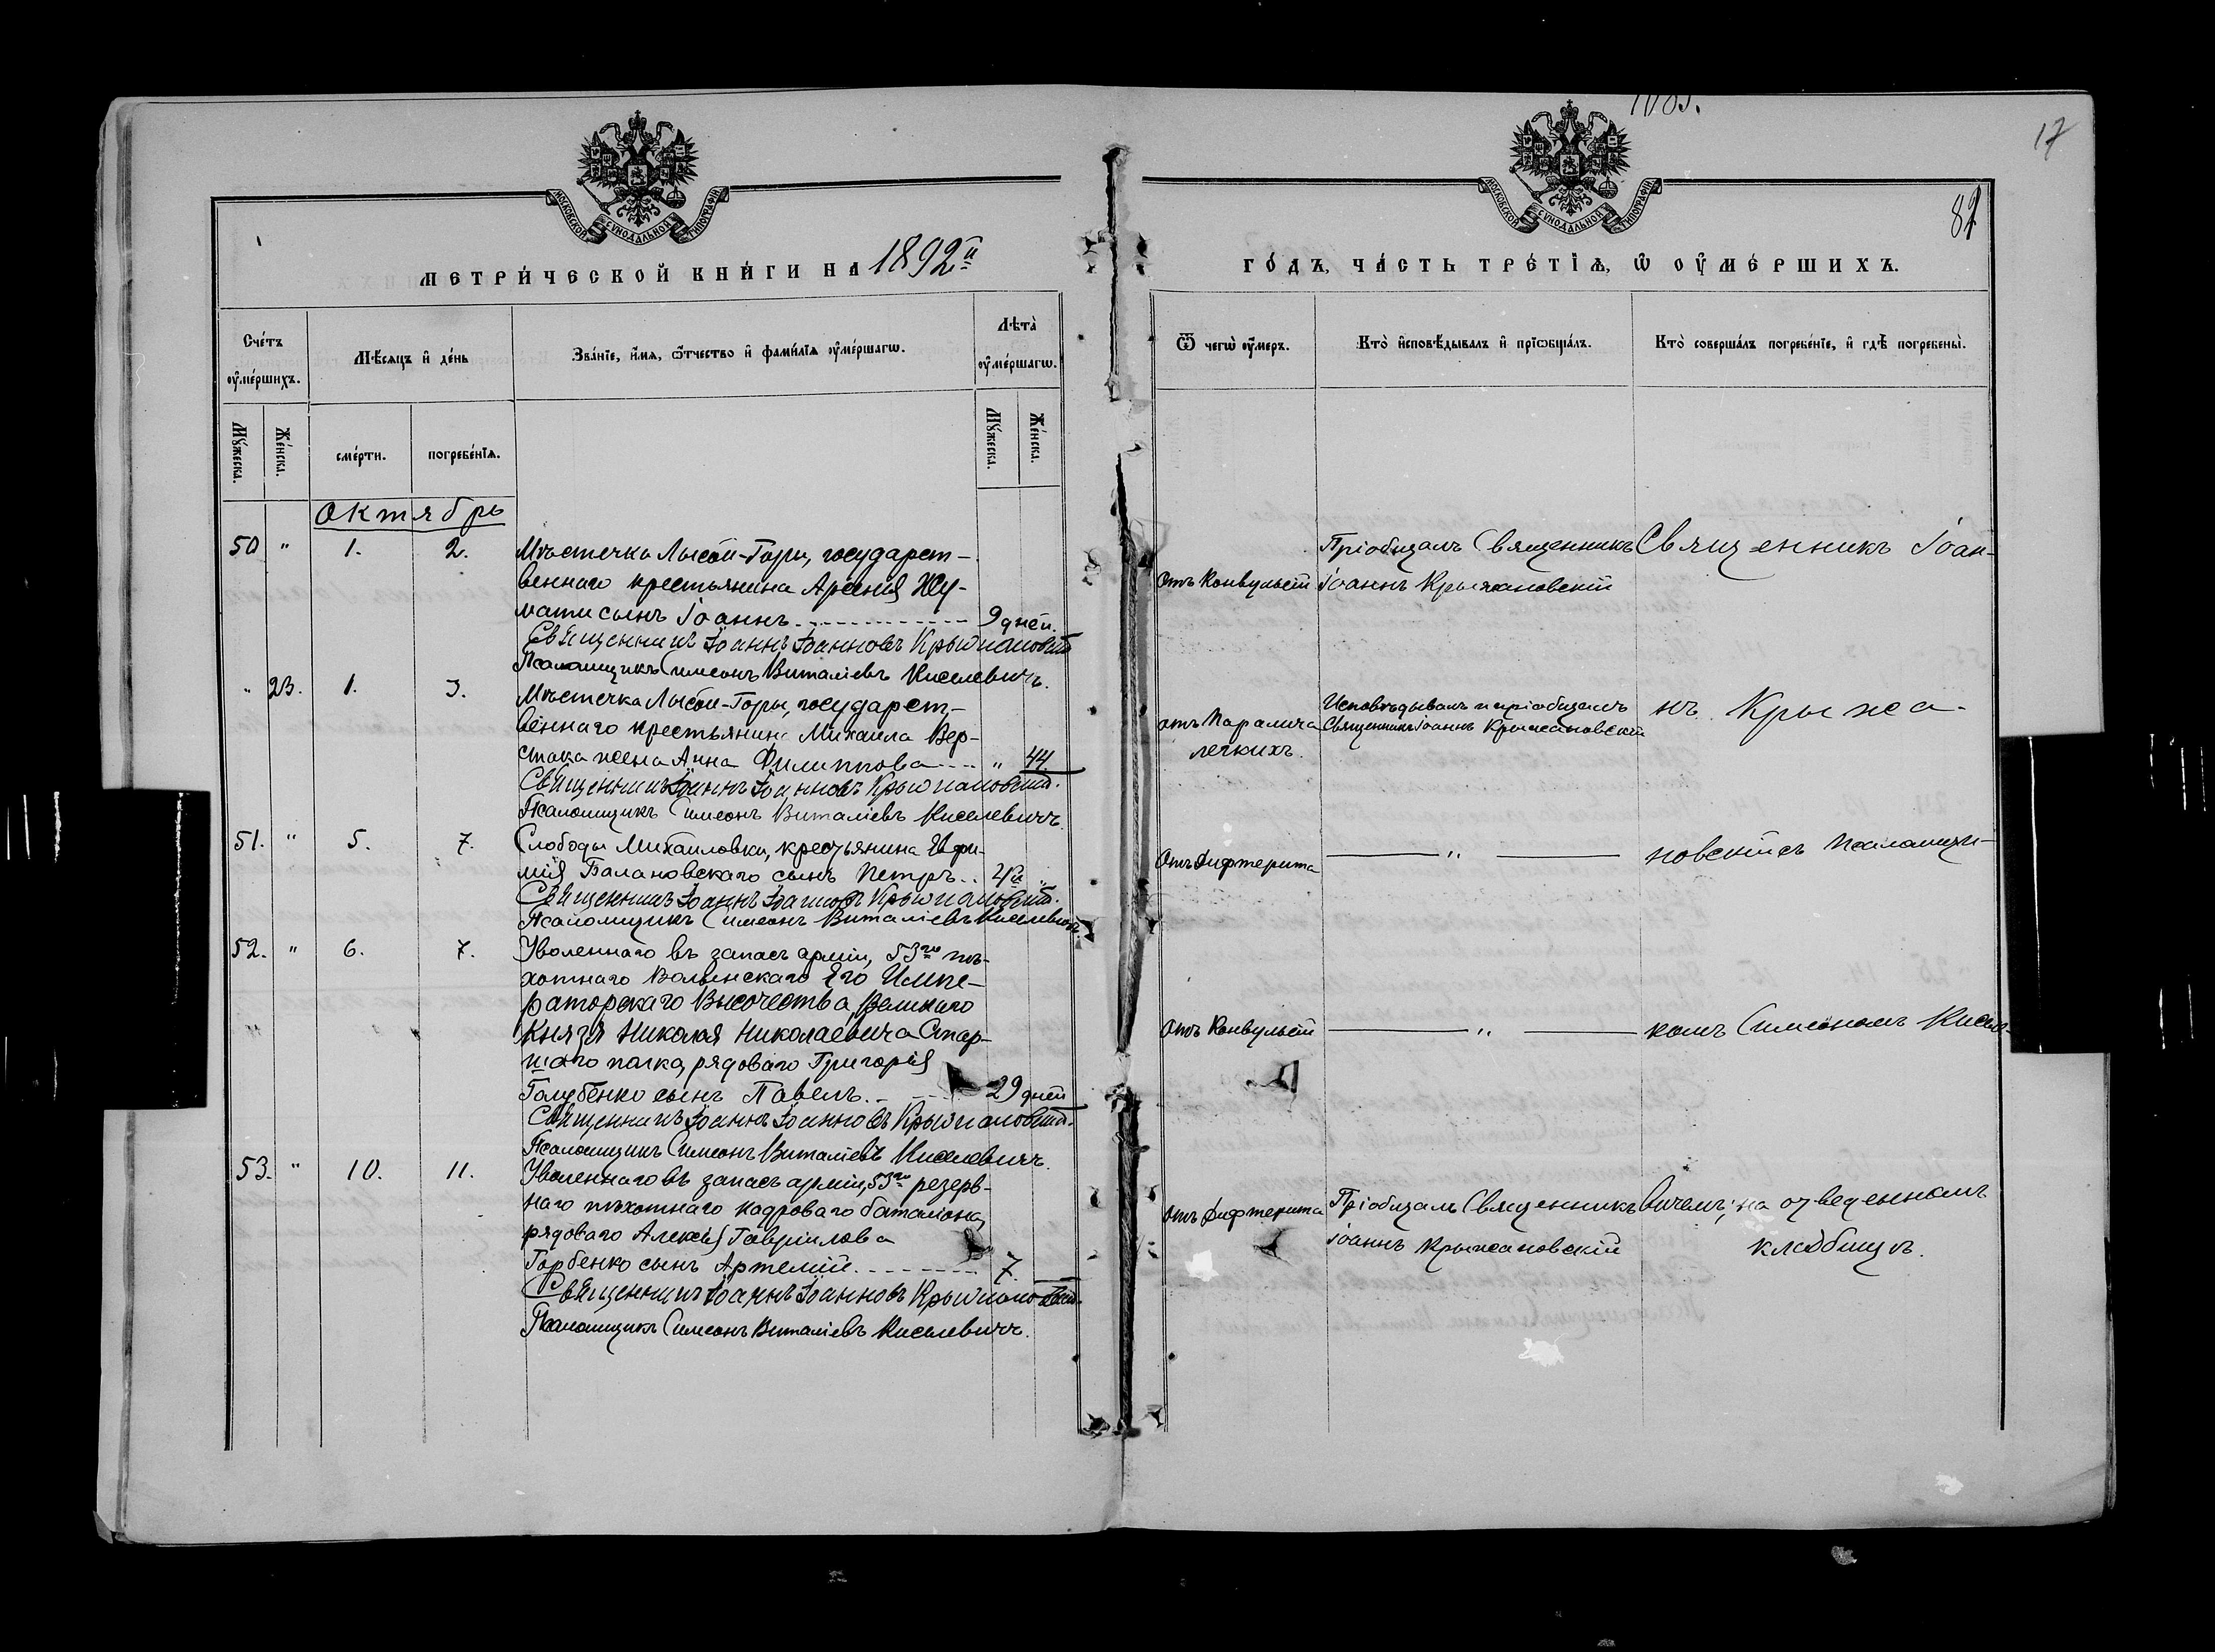 1885.
17
82
МОСКОВСКОЙ СУНОДАЛЬНОЙ ТИПОГРАФІИ
МОСКОВСКОЙ СУНОДАЛЬНОЙ ТИПОГРАФІИ
МЕТРИ́ЧЕСКОЙ КНИ́ГИ НА 1892й
ГО́ДЪ, ЧА́СТЬ ТРЕ́ТІѦ, Ѡ ОУМЕ́РШИХЪ.
Сче́тъ оумершихъ.
Мѣ́сяцъ и де́нь
Зва́нїе, и́мѧ, ѻ́тчество и фами́лїѧ оуме́ршагѡ.
Лѣта̀ оуме́ршагѡ.
Ѿ чегѡ̀ оу́меръ.
Кто̀ и̓сповѣ́дывалъ и прїѡбща́лъ.
Кто̀ соверша́лъ погребе́нїе, и гдѣ̀ погребены̀.
Му́жеска.
Же́нска.
сме́рти.
погребе́нїѧ.
Му́жеска.
Же́нска.
Октябрь
50 " 1. 2. Мѣстечка Лысой-Горы, государст-
веннаго крестьянина Арсенія
сынъ Іоаннъ 9 дней.
Священникъ Іоаннъ Іоанновъ Крыжановскій
Псаломщикъ Симеонъ Виталіевъ Киселевичъ.
Отъ Конвульсій
Пріобщалъ Священникъ
Іоаннъ Крыжановскій
Священникъ Іоан-
" 23. 1. 3. Мѣстечка Лысой-Горы, государст-
веннаго крестьянина Михаила Вер-
стака жена Анна Филиппова " 44.
Священникъ Іоаннъ Іоанновъ Крыжановскій.
Псаломщикъ Симеонъ Виталіевъ Киселевичъ.
отъ Паралича
легкихъ.
Исповѣдывалъ и пріобщалъ
Священникъ Іоаннъ Крыжановскій
нъ Крыжа-
51. " 5. 7. Слободы Михайловки, крестьянина Евфи-
мія Балановскаго сынъ Петръ 4 "
Священникъ Іоаннъ Іоанновъ Крыжановскій.
Псаломщикъ Симеонъ Виталіевъ Киселевичъ.
Отъ Дифтерита
"
новскій съ Псаломщи-
52. " 6. 7. Уволеннаго въ запасъ арміи, 53го пѣ-
хотнаго Волынскаго Его Импе-
раторскаго Высочества, Великаго
Князя Николая Николаевича Стар-
шаго полка, рядоваго Григорія
Голубенко сынъ Павелъ 29 дней
Священникъ Іоаннъ Іоанновъ Крыжановскій.
Псаломщикъ Симеонъ Виталіевъ Киселевичъ.
отъ Конвульсій
"
комъ Симеономъ Кисел-
53. " 10. 11. Уволеннаго въ запасъ арміи, 53го резерв-
наго пѣхотнаго кадроваго баталіона,
рядоваго Алексія Гаврилова
Горбенко сынъ Артемій 7.
Священникъ Іоаннъ Іоанновъ Крыжановскій.
Псаломщикъ Симеонъ Виталіевъ Киселевичъ.
отъ Дифтерита
Пріобщалъ Священникъ
Іоаннъ Крыжановскій
вичемъ; на отведенномъ
кладбищѣ.